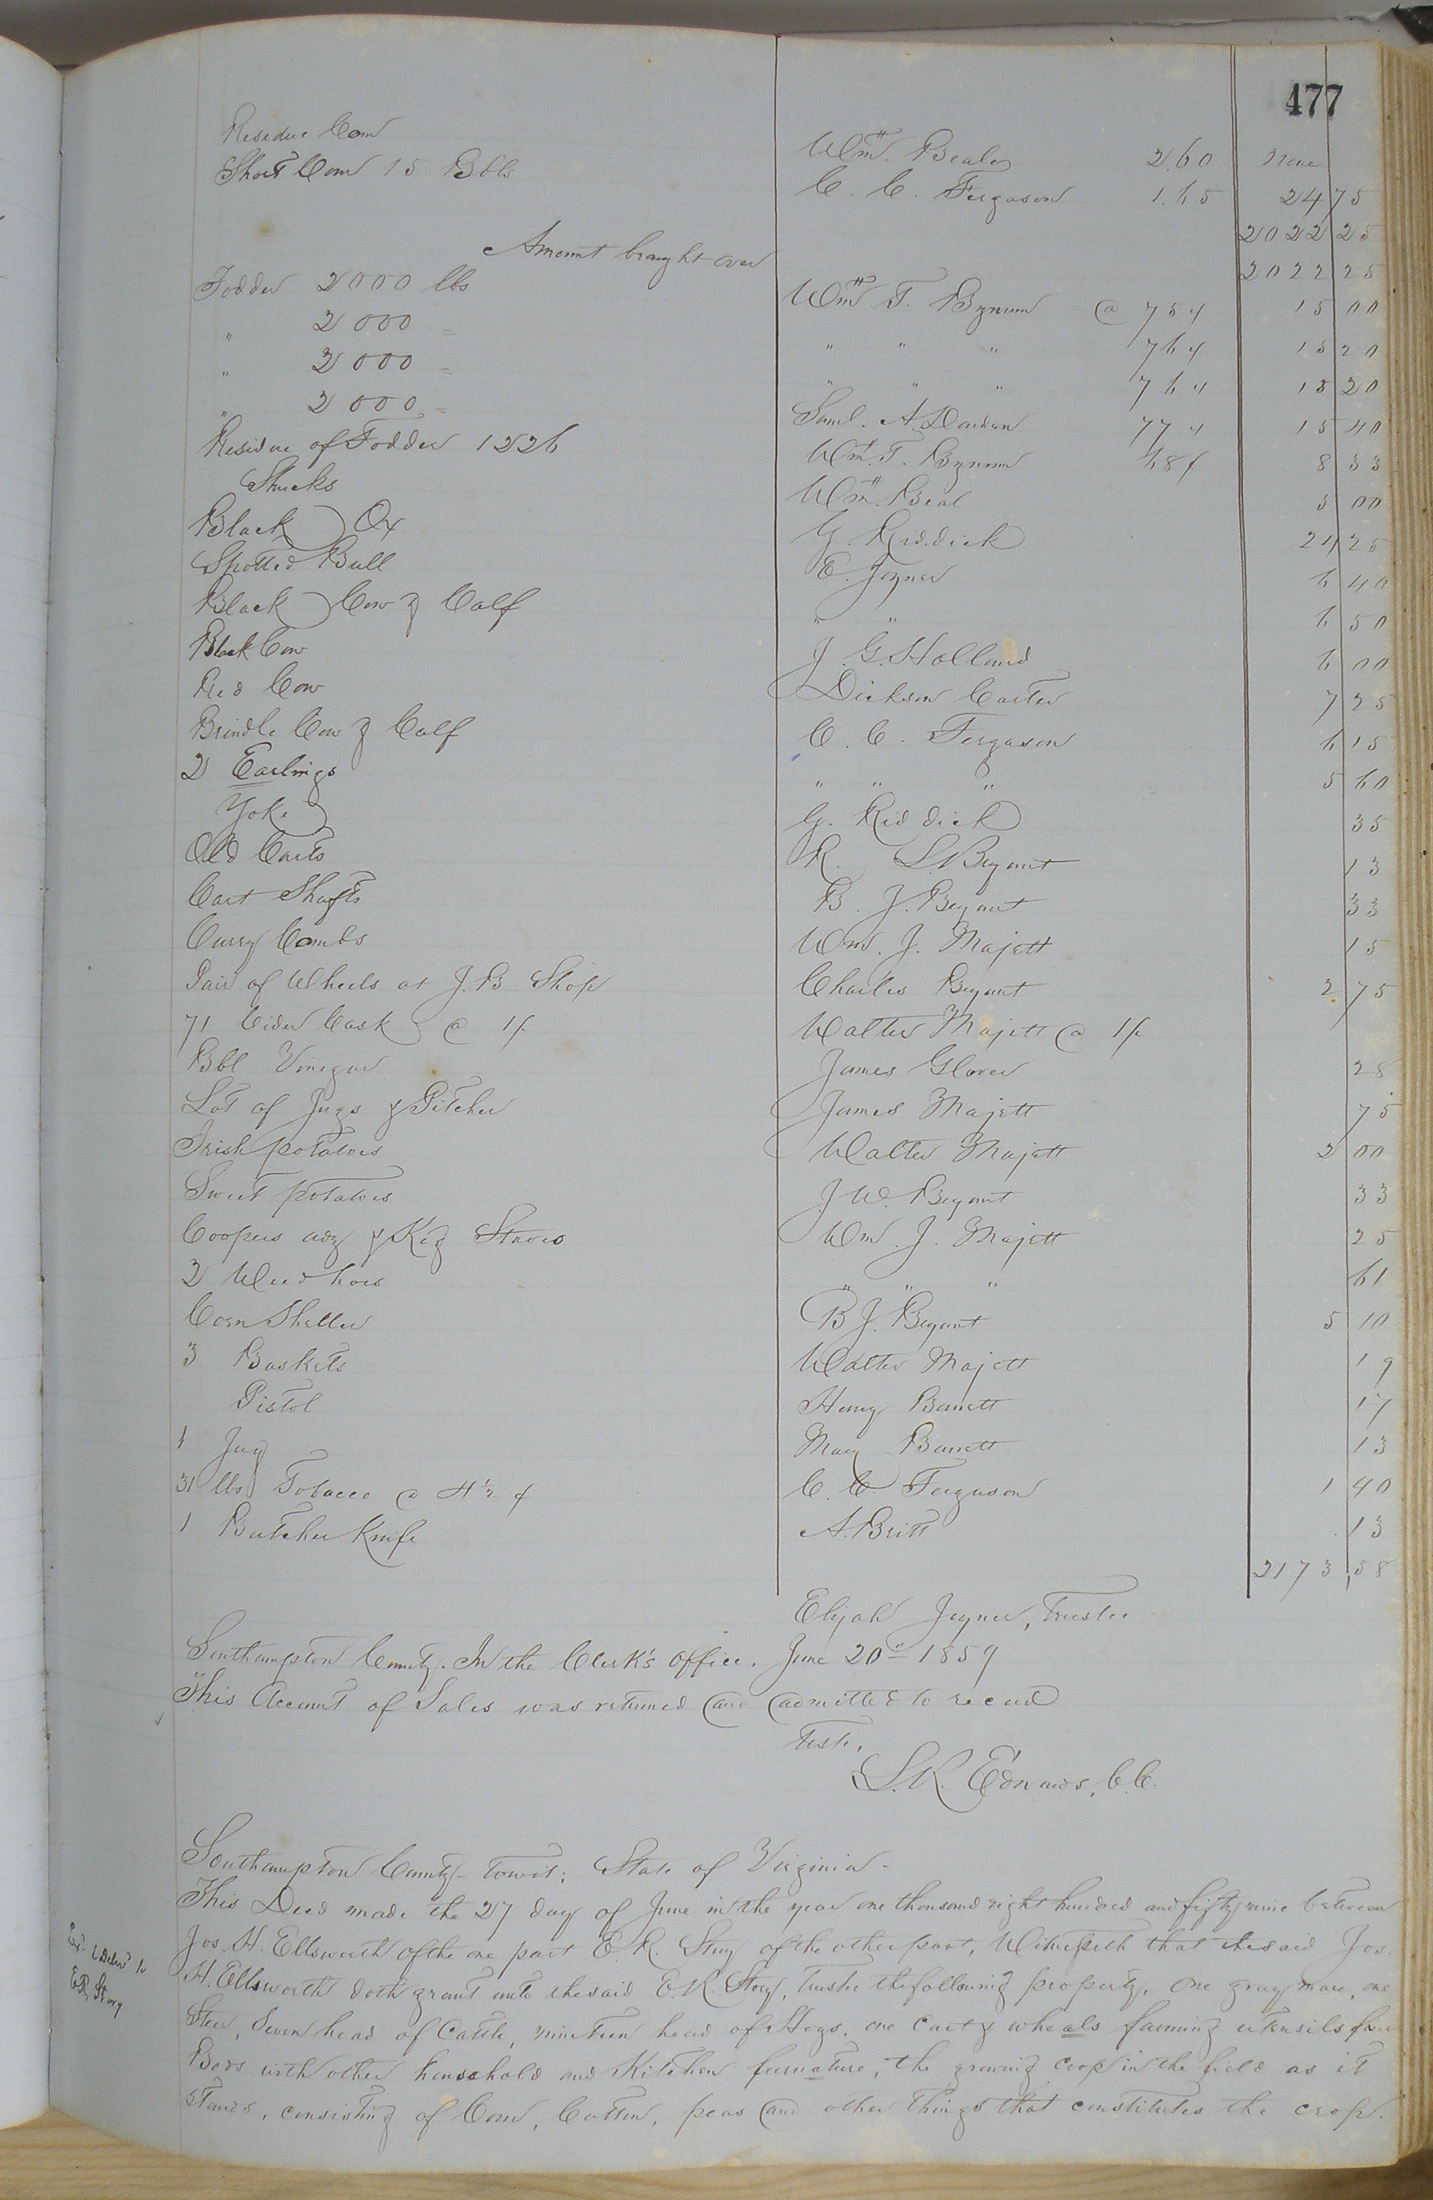 477
Residue Corn Wm. Beale 2.60 None
Short Corn 15 Bbls C. C. Ferguson 1.65 24 75
2022 25
Amount brought over 2022 25
Fodder 2000 lbs Wm. T. Bynum @ 75¢ 15 00
" 2000 = " " " 76¢ 15 20
" 2000 = " " " 76¢ 15 20
" 2000 = Saml. A. Darden 77¢ 15 40
Residue of Fodder 1226 Wm. T. Bynum 68¢ 8 33
Shucks Wm. Beal 5 00
Black Ox G. Riddick 24 25
Spotted Bull E. Joyner 6 40
Black Cow & Calf " " 6 50
Black Cow J. G. Holland 6 00
Red Cow Dickson Carter 7 25
Brindle Cow & Calf C. C. Ferguson 6 15
2 Earlings " " " 5 60
Yoke G. Riddick 35
Old Carts R. S. Bryant 13
Cart Shafts B. J. Bryant 33
Curry Combs Wm. J. Majett 15
Pair of Wheels at J. B Shop Charles Bryant 2 75
71 Cider Cask @ 1/. Walter Majett @ 1/.
Bbl Vinegar James Glover 28
Lot of Jugs & Pitcher James Majett 75
Irish potatoes Walter Majett 2 00
Sweet potatoes J. W. Bryant 33
Coopers adz & Keg Staves Wm. J. Majett 25
2 Weed hoes " " " 61
Corn Sheller B J. Bryant 5 10
3 Baskets Walter Majett 19
Pistol Henry Barrett 17
1 Jug Mary Barrett 13
31 lbs Tobacco @ 4½ ¢ C. C. Ferguson 1 40
1 Butcher Knife A. Britt 13
2173,58
Elijah Joyner, Trustee
Southampton County. In the Clerk's office. June 20" 1859
This Account of Sales was returned and admitted to record
Teste,
L. R. Edwards, C.C.
Southampton County- towit; State of Virginia-
This Deed made the 27 day of June in the year one thousand eight hundred and fifty nine between
Jos. H. Ellsworth of the one part E. R. Story of the other part, Witnesseth that the said Jos.
H. Ellsworth doth grant unto the said E. R. Story, Trustee the following property, One gray mare, one
Steer, Seven head of Cattle, nineteen head of Hogs, one Cart & wheals farming utensils four
Beds with other household and Kitchen furnature, the growing crop in the field as it
stands, consisting of Corn, Cotton, peas and other things that constitutes the crop.
Delvd to
E.R. Story